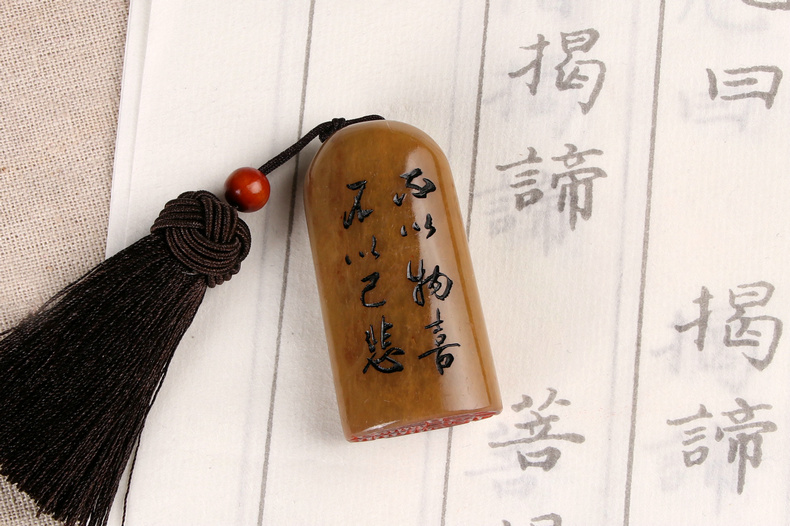 不以物喜
不以己悲
曰
揭諦
揭諦
菩